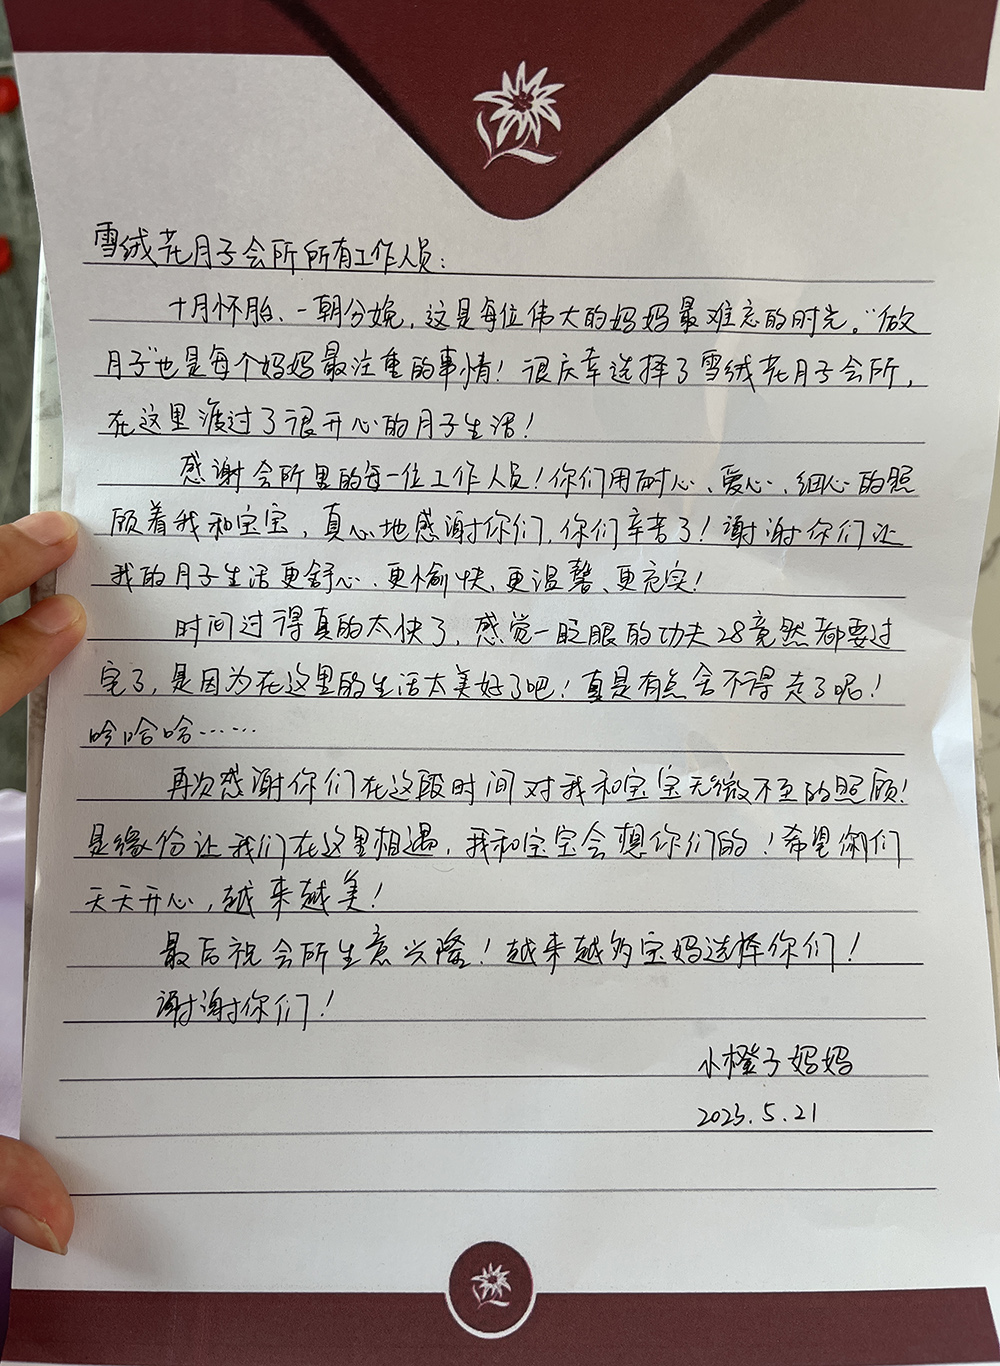 雪绒花月子会所所有工作人员：
十月怀胎、一朝分娩，这是每位伟大的妈妈最难忘的时光。“做
月子”也是每个妈妈最注重的事情！很庆幸选择了雪绒花月子会所，
在这里渡过了很开心的月子生活！
感谢会所里的每一位工作人员！你们用耐心、爱心、细心的照
顾着我和宝宝，真心地感谢你们，你们辛苦了！谢谢你们让
我的月子生活更舒心、更愉快、更温馨、更充实！
时间过得真的太快了，感觉一眨眼的功夫28竟然都要过
完了，是因为在这里的生活太美好了吧！真是有点舍不得走了呢！
哈哈哈……
再次感谢你们在这段时间对我和宝宝无微不至的照顾！
是缘份让我们在这里相遇，我和宝宝会想你们的！希望你们
天天开心，越来越美！
最后祝会所生意兴隆！越来越多宝妈选择你们！
谢谢你们！
小橙子妈妈
2023.5.21